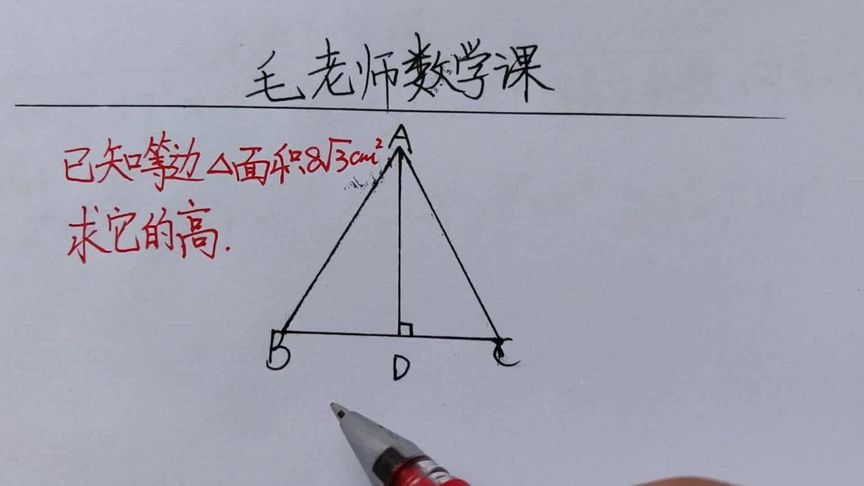 毛老师数学课
已知等边△面积8√3cm²
求它的高.
A
B
D
C